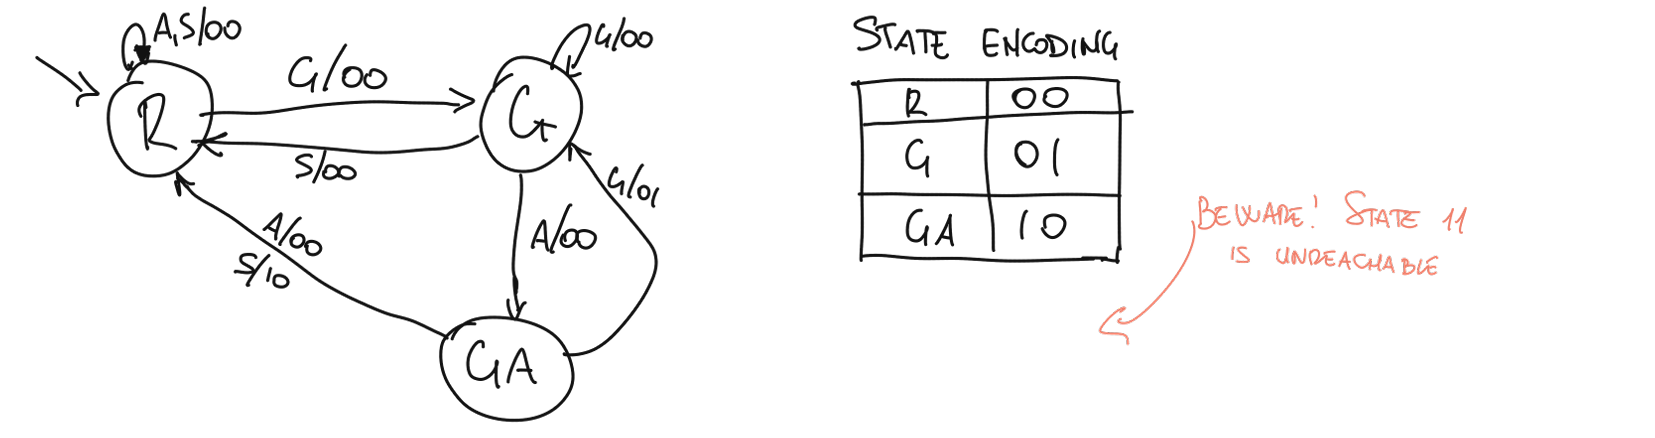 A,S/00
G/00
G/00
R
G
S/00
G/01
A/00
A/00
S/10
GA
STATE ENCODING
R 00
G 01
GA 10
BEWARE! STATE 11
IS UNREACHABLE